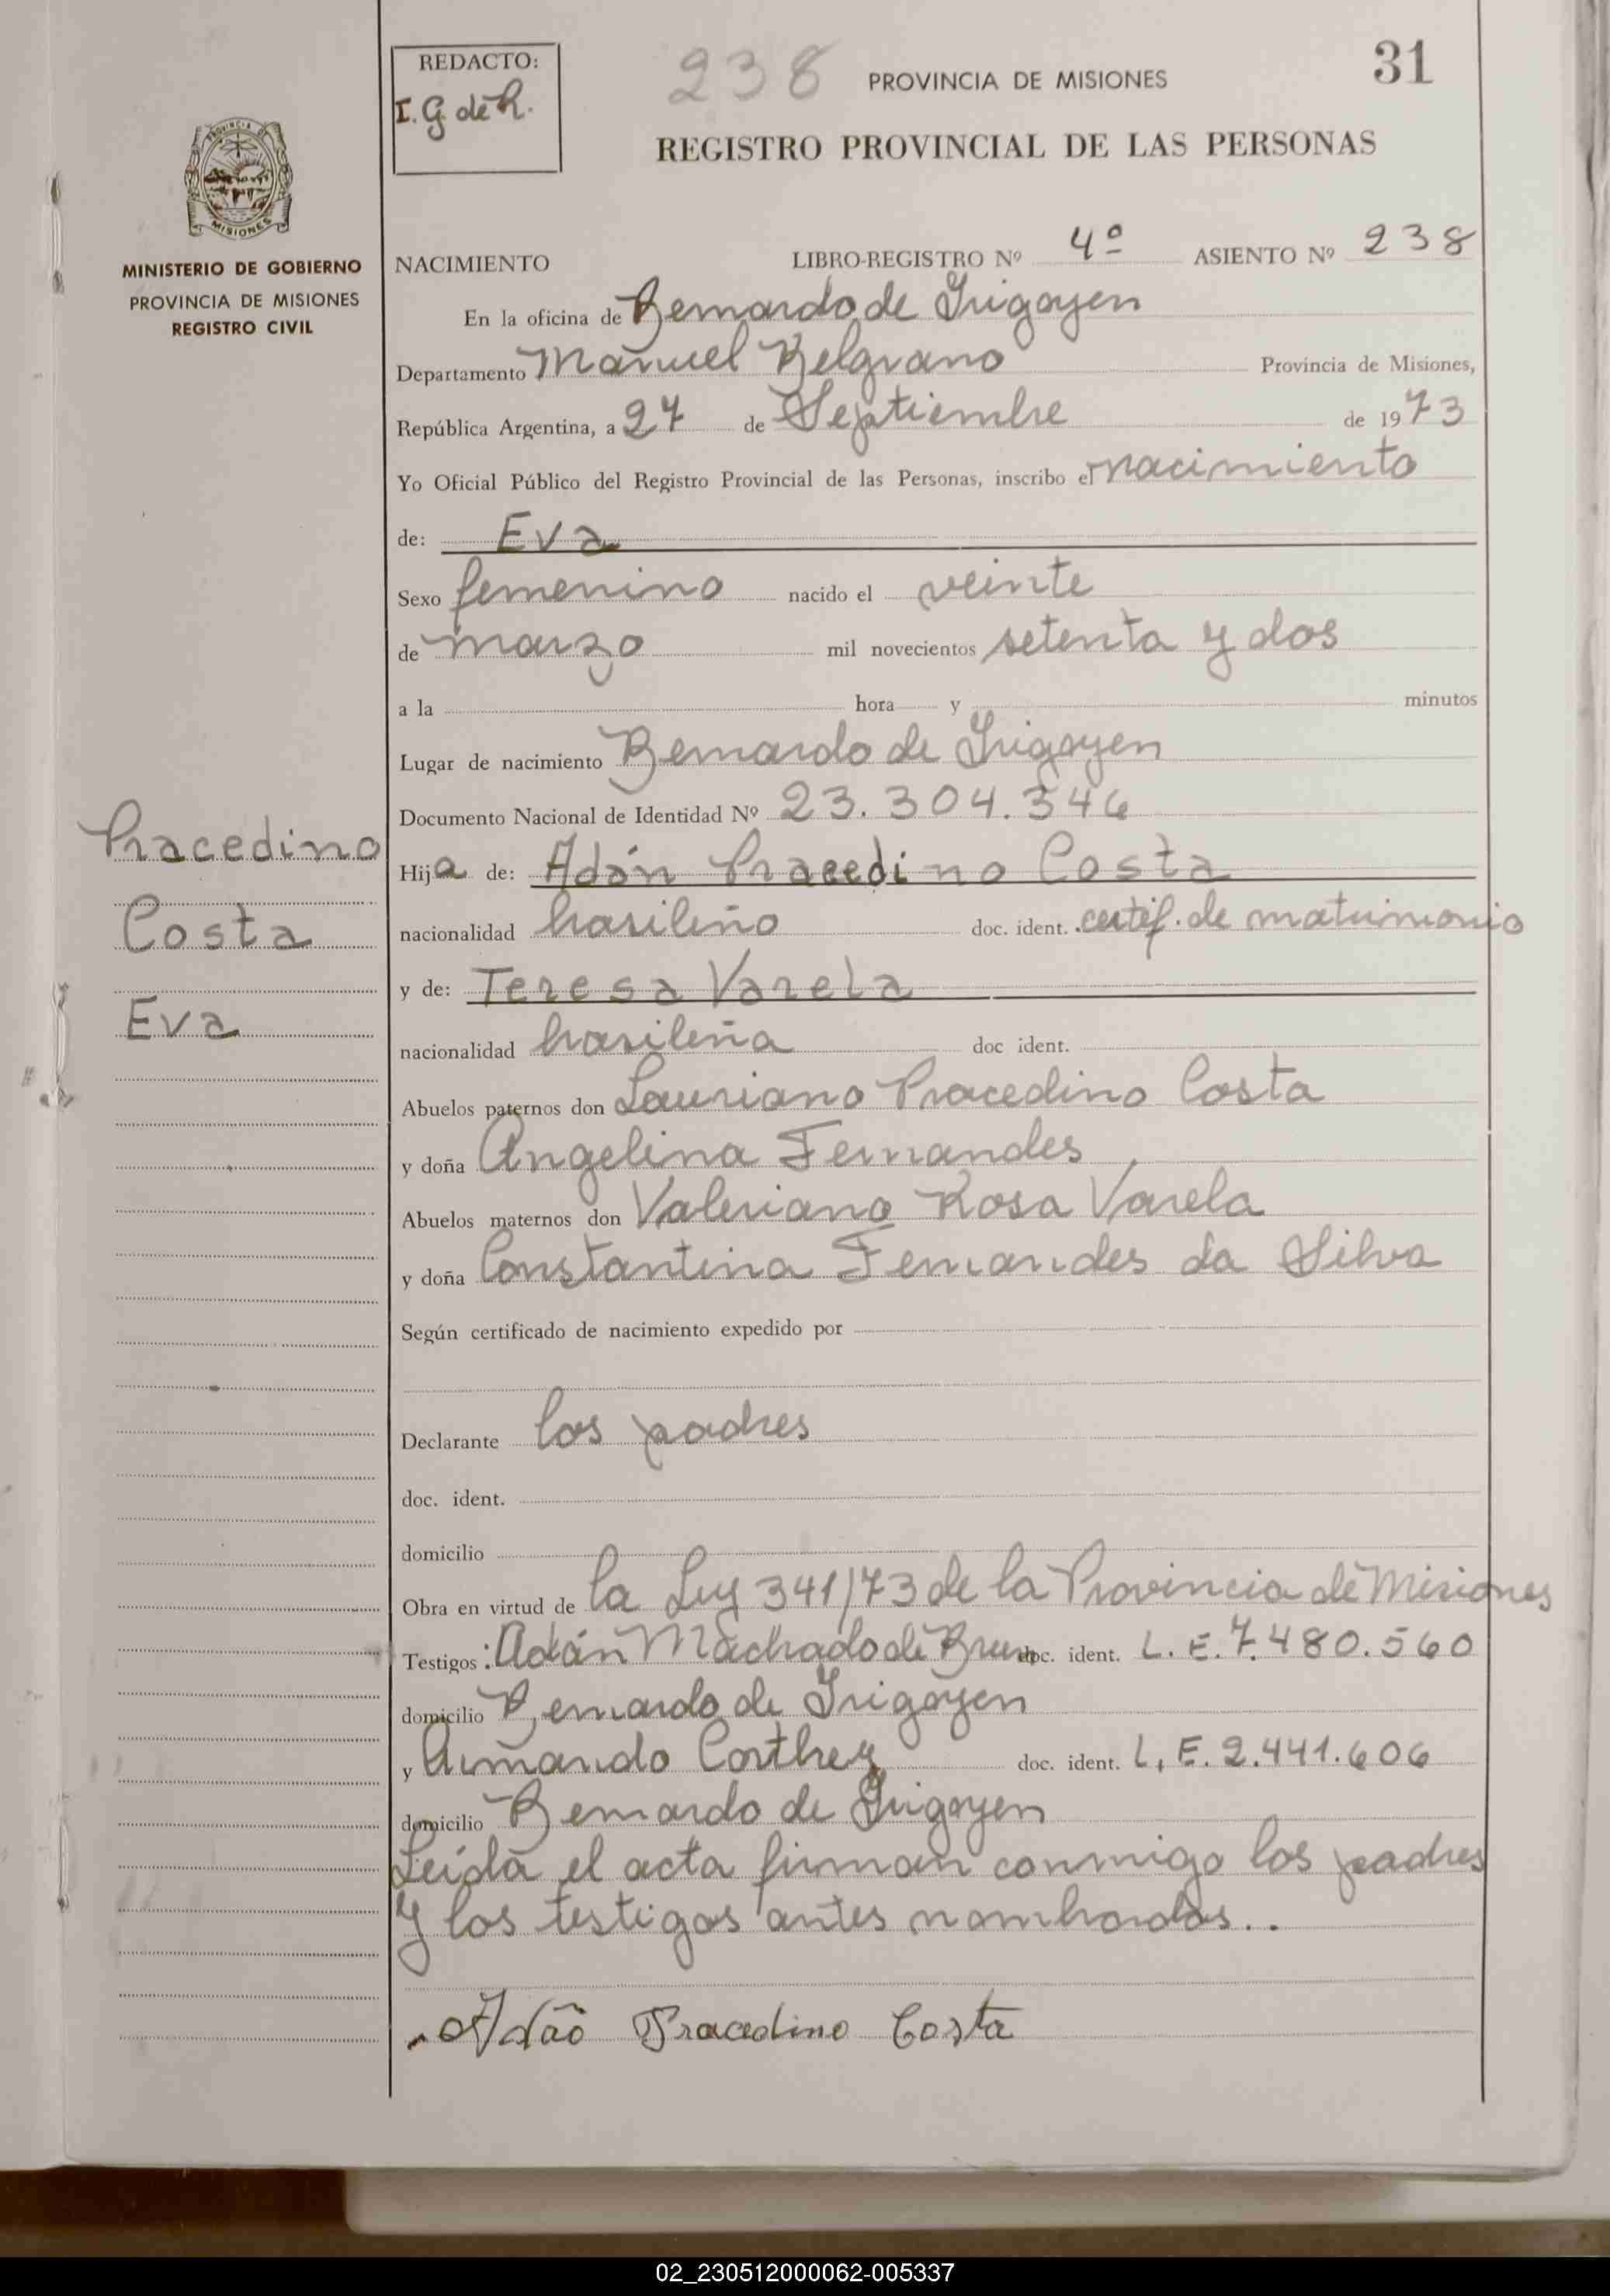 REDACTO:
I. G. de R.
238 PROVINCIA DE MISIONES 31
REGISTRO PROVINCIAL DE LAS PERSONAS
PROVINCIA DE
MISIONES
MINISTERIO DE GOBIERNO
PROVINCIA DE MISIONES
REGISTRO CIVIL
NACIMIENTO LIBRO-REGISTRO Nº 4º ASIENTO Nº 238
En la oficina de Bernardo de Irigoyen
Departamento Manuel Belgrano Provincia de Misiones,
República Argentina, a 27 de Septiembre de 1973
Yo Oficial Público del Registro Provincial de las Personas, inscribo el nacimiento
de: Eva
Sexo femenino nacido el veinte
de marzo mil novecientos setenta y dos
a la hora y minutos
Lugar de nacimiento Bernardo de Irigoyen
Documento Nacional de Identidad Nº 23.304.346
Pracedino
Costa
Eva
Hija de: Adán Pracedino Costa
nacionalidad brasileño doc. ident. certif. de matrimonio
y de: Teresa Varela
nacionalidad brasileña doc ident.
Abuelos paternos don Lauriano Pracedino Costa
y doña Angelina Fernandes
Abuelos maternos don Valeriano Rosa Varela
y doña Constantina Fernandes da Silva
Según certificado de nacimiento expedido por
Declarante los padres
doc. ident.
domicilio
Obra en virtud de la Ley 341/73 de la Provincia de Misiones
Testigos: Adán Machado de doc. ident. L.E. 7.480.560
domicilio Bernardo de Irigoyen
y Armando Corthey doc. ident. L.E. 2.441.606
domicilio Bernardo de Irigoyen
Leída el acta firman conmigo los padres
y los testigos antes nombrados..
Adão Pracedino Costa
02_230512000062-005337